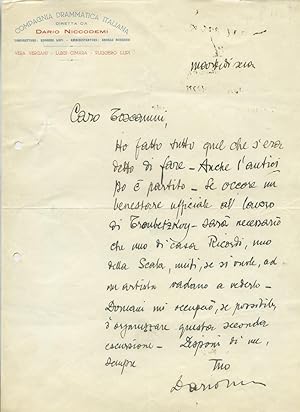 COMPAGNIA DRAMMATICA ITALIANA
DIRETTA DA
DARIO NICCODEMI
VERA VERGANI - LUIGI CIMARA - RUGGERO LUPI
martedì sera
Caro Toscanini,
Ho fatto tutto quel che s'era
detto di fare - Anche l'anticipo
è partito - Se occorre un
benestare ufficiale al lavoro
di Troubetzkoy - sarà necessario
che uno di casa Ricordi, uno
della Scala, uniti, se si vuole, ad
un artista vadano a vederlo -
Domani mi occuperò, se possibile,
d'organizzare questa seconda
escursione - Disponi di me,
sempre
Tuo